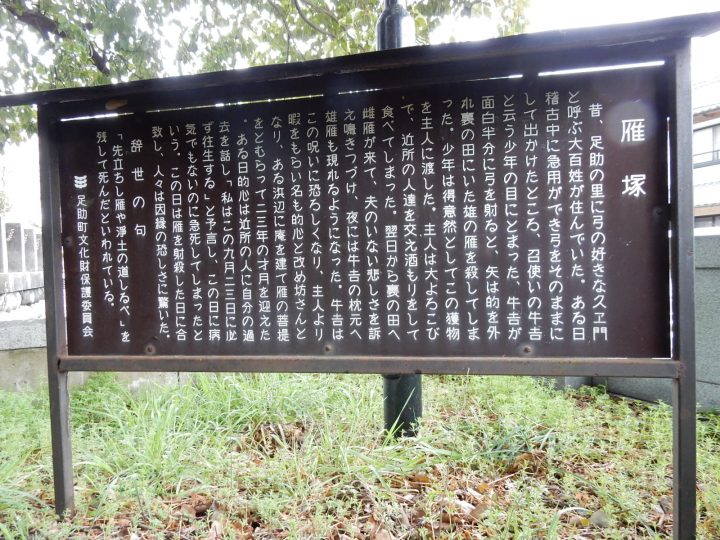 雁塚
昔、足助の里に弓の好きな久ヱ門
と呼ぶ大百姓が住んでいた。ある日
稽古中に急用ができ弓をそのままに
して出かけたところ、召使いの牛吉
と云う少年の目にとまった、牛吉が
面白半分に弓を射ると、矢は的を外
れ裏の田にいた雄の雁を殺してしま
った。少年は得意然としてこの獲物
を主人に渡した。主人は大よろこび
で、近所の人達を交え酒もりをして
食べてしまった。翌日から裏の田へ
雌雁が来て、夫のいない悲しさを訴
え鳴きつづけ、夜には牛吉の枕元へ
雄雁も現れるようになった。牛吉は
この呪いに恐ろしくなり、主人より
暇をもらい名も的心と改め坊さんと
なり、ある浜辺に庵を建て雁の菩提
をとむらって二三年の才月を迎えた
。ある日的心は近所の人に自分の過
去を話し「私はこの九月二三日に必
ず往生する」と予言し、この日に病
気でもないのに急死してしまったと
いう。この日は雁を射殺した日に合
致し、人々は因縁の恐しさに驚いた。
辞世の句
「先立ちし雁や浄土の道しるべ」を
残して死んだといわれている。
足助町文化財保護委員会